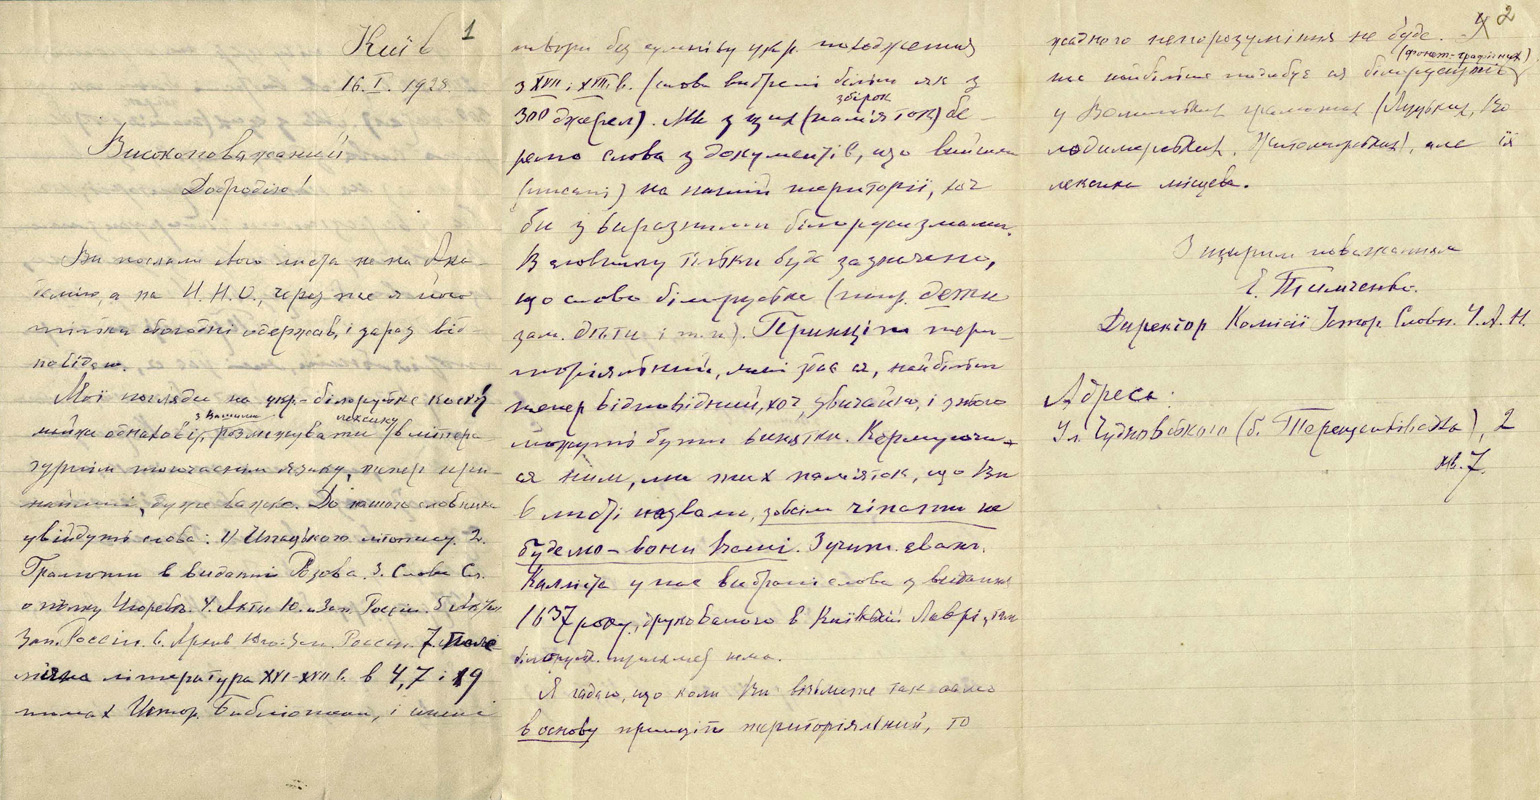 1
Київ
16.I. 1928.
Високоповажаний
Добродію!
Ви послали свого листа не на Ака-
демію, а на И.Н.О., через що я його
тільки сьогодні одержав, і зараз від-
повідаю.
Мої погляди на укр.-білоруське
з Вашими лексику
однакові; розмежувати в літера-
турнім тогочаснім язику, тепер при-
наймні, дуже важко. До нашого словника
увійдуть слова: 1) Ипатського літопису. 2.
Грамоти в виданні Розова. 3. Слова Сл.
о полку Игоревѣ. 4. Акты Ю. и Зап. Россіи. 5 Акты
Зап. Россіи. 6. Архив Юго-Зап. Россіи. 7. Поле-
мічна література XVI-XVII в. в 4, 7 і 19
томах Истор. Библіотеки, і инші
твори без сумніву укр. походження
з XVII і XVIII в. (слова вибрані більш як з
збірок
300 джерел). Ми з цих (пам'яток) бе-
ремо слова з документів, що вийшли
(писані) на нашій території, хоч
би з виразними білорусизмами.
В словнику тільки буде зазначено,
що слово білоруське (напр. дежи
зам. діти і т. п.). Принціп тери-
торіяльний, мені здає ся, найбільш
тепер відповідний, хоч, звичайно, і з нього
можуть бути винятки. Кермуючи-
ся ним, ми тих пам'яток, що Ви
в листі назвали, зовсім чіпати не
будемо – вони Ваші. З учит. еванг.
Каліста у нас вибрані слова з видання
1637 року, друкованого в Київській Лаврі, там
білорус. прикмет нема.
Я гадаю, що коли Ви візьмете так само
в основу принціп територіяльний, то
2
жадного непорозуміння не буде.
(фонет.-графічних)
що найбільше подибує ся білорусизмів
у Волинських грамотах (Луцьких, Во-
лодимирських, Житомирських), але їх
лексика місцева.
З щирим поважанням
Є. Тимченко.
Директор Комісії Істор. Словн. У.А.Н.
Адреса:
Ул. Чудновського (б. Терещенківська), 2
кв. 7.